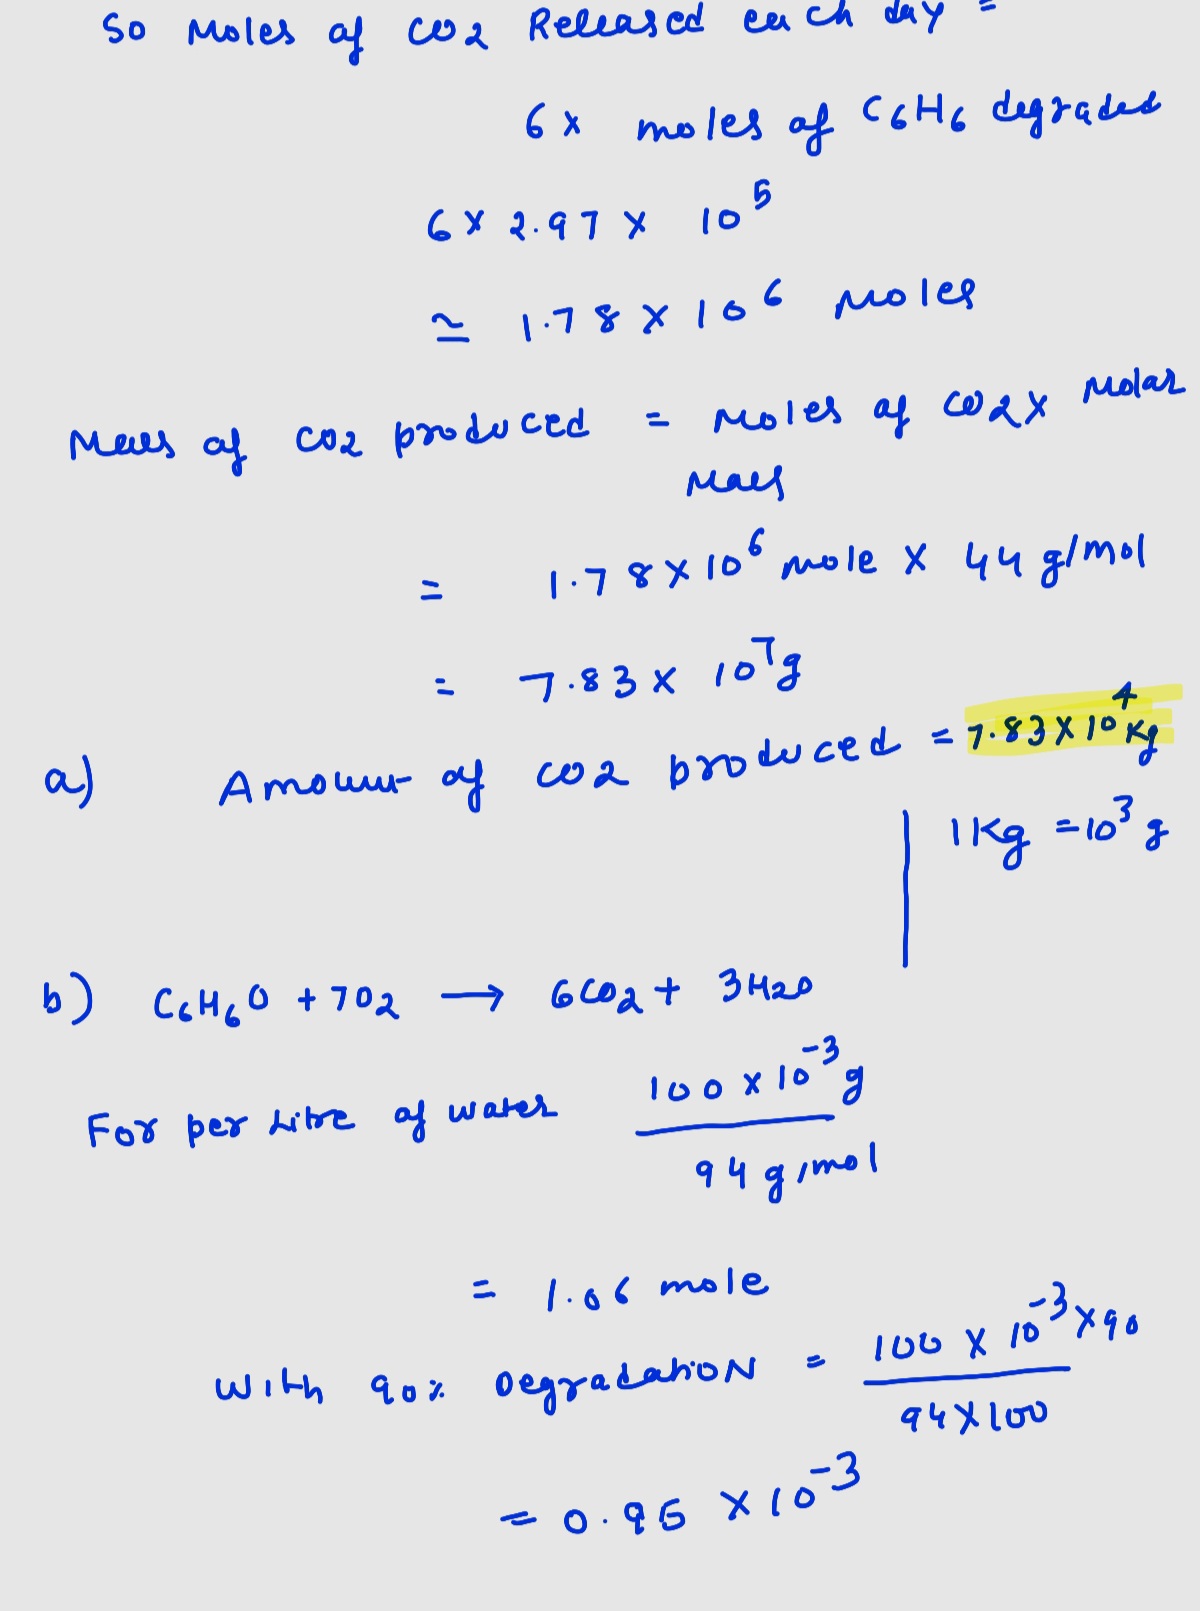 So Moles of CO2 Released each day =
6 x moles of C6H6 degraded
6 x 2.97 x 10^5
≃ 1.78 x 10^6 Moles
Mass of CO2 produced = Moles of CO2 x Molar
Mass
= 1.78 x 10^6 mole x 44 g/mol
= 7.83 x 10^7 g
a) Amount of CO2 produced = 7.83 x 10^4 Kg
1 Kg = 10^3 g
b) C6H6O + 7O2 → 6CO2 + 3H2O
For per Litre of water 100 x 10^-3 g
94 g/mol
= 1.06 mole
With 90% Degradation = 100 x 10^-3 x 90
94 x 100
= 0.95 x 10^-3